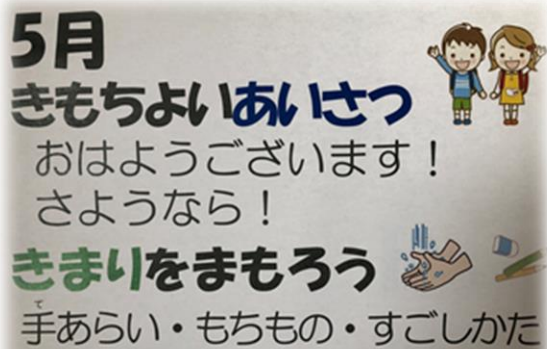 5月
きもちよいあいさつ
おはようございます！
さようなら！
きまりをまもろう
て
手あらい・もちもの・すごしかた